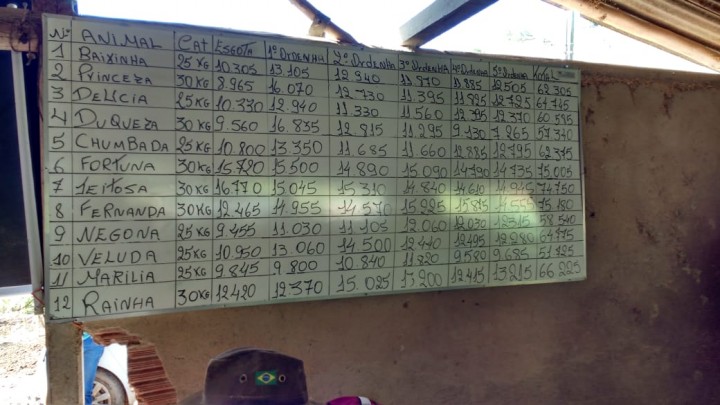 Nº ANIMAL CAT ESGOTA 1º ORDENHA 2º ORDENHA 3º ORDENHA 4º ORDENHA 5º ORDENHA
1 BAIXINHA 25KG 10.305 13.105 12.940 11.970 11.885 12.505 62.305
2 PRINCEZA 30KG 8.965 16.070 12.730 11.395 11.825 12.725 64.745
3 DELICIA 25KG 10.330 12.940 11.330 11.560 12.395 12.370 60.595
4 DUQUEZA 30KG 9.560 16.835 12.815 11.295 9.130 7.265 57.340
5 CHUMBADA 25KG 10.800 13.350 11.685 11.660 12.885 12.795 62.375
6 FORTUNA 30KG 15.720 15.500 14.890 15.090 14.790 14.735 75.005
7 JEITOSA 30KG 16.770 15.045 15.310 14.840 14.610 14.945 74.750
8 FERNANDA 30KG 12.465 14.955 14.570 15.225 15.875 14.555 75.180
9 NEGONA 25KG 9.455 11.030 11.105 12.060 12.030 12.315 58.540
10 VELUDA 25KG 10.950 13.060 14.500 12.440 12.495 12.280 64.775
11 MARILIA 25KG 9.845 9.800 10.840 11.820 9.580 9.685 51.725
12 RAINHA 30KG 12420 12.370 15.025 13.200 12.415 13.215 66.225